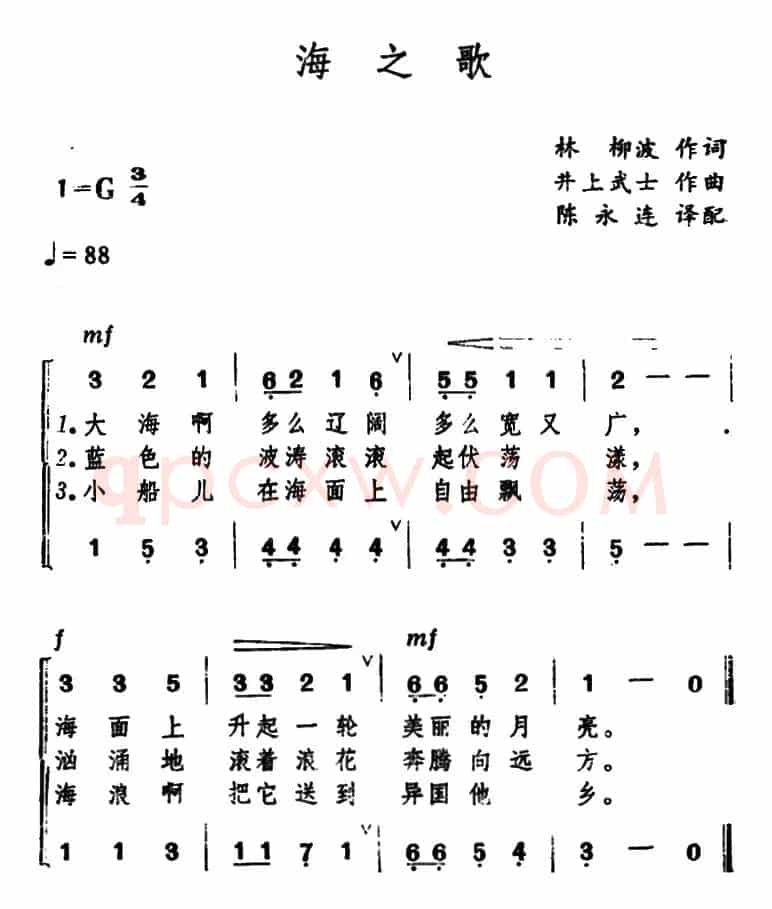 海之歌
林 柳波 作词
1=G 3/4
井上武士 作曲
陈永连 译配
♩=88
mf
3 2 1 | 6̣2 1 6̣ ∨ | 5̣5̣ 1 1 | 2 — — |
1.大 海 啊 多么辽阔 多么宽又 广，
2.蓝 色 的 波涛滚滚 起伏荡 漾，
3.小 船 儿 在海面上 自由飘 荡，
1 5̣ 3̣ | 4̣4̣ 4̣ 4̣ ∨ | 4̣4̣ 3̣ 3̣ | 5̣ — — |
f mf
3 3 5 | 33 2 1 ∨ | 6̣6̣ 5̣ 2 | 1 — 0 ‖
海 面 上 升起一轮 美丽的月 亮。
汹 涌 地 滚着浪花 奔腾向远 方。
海 浪 啊 把它送到 异国他 乡。
1 1 3 | 11 7̣ 1 ∨ | 6̣6̣ 5̣ 4̣ | 3̣ — 0 ‖
qpcxw.COM